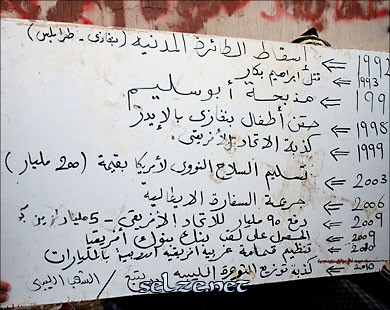 1992 ⇐ إسقاط الطائرة المدنية (بنغازي - طرابلس)
1993 ⇐ قتل ابراهيم بكار
199 ⇐ مذبحة أبو سليم
1998 ⇐ حقن أطفال بنغازي بالإيدز
1999 ⇐ كذبة الاتحاد الأفريقي
2003 ⇐ تسليم السلاح النووي لأمريكا بقيمة (200 مليار)
2006 ⇐ جريمة السفارة الايطالية
2009 ⇐ دفع 90 مليار للاتحاد الأفريقي - 5 مليار
2009 ⇐ الحصول على لقب ملك ملوك أفريقيا
2010 ⇐ تنظيم قمامة عربية أفريقية أوروبية بالمليارات
2010 ⇐ كذبة توزيع الثروة الليبية
يتبع / الشعب الليبي
selze.net